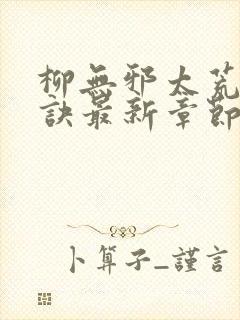 柳無邪太荒
訣最新章節
卜算子_謹言